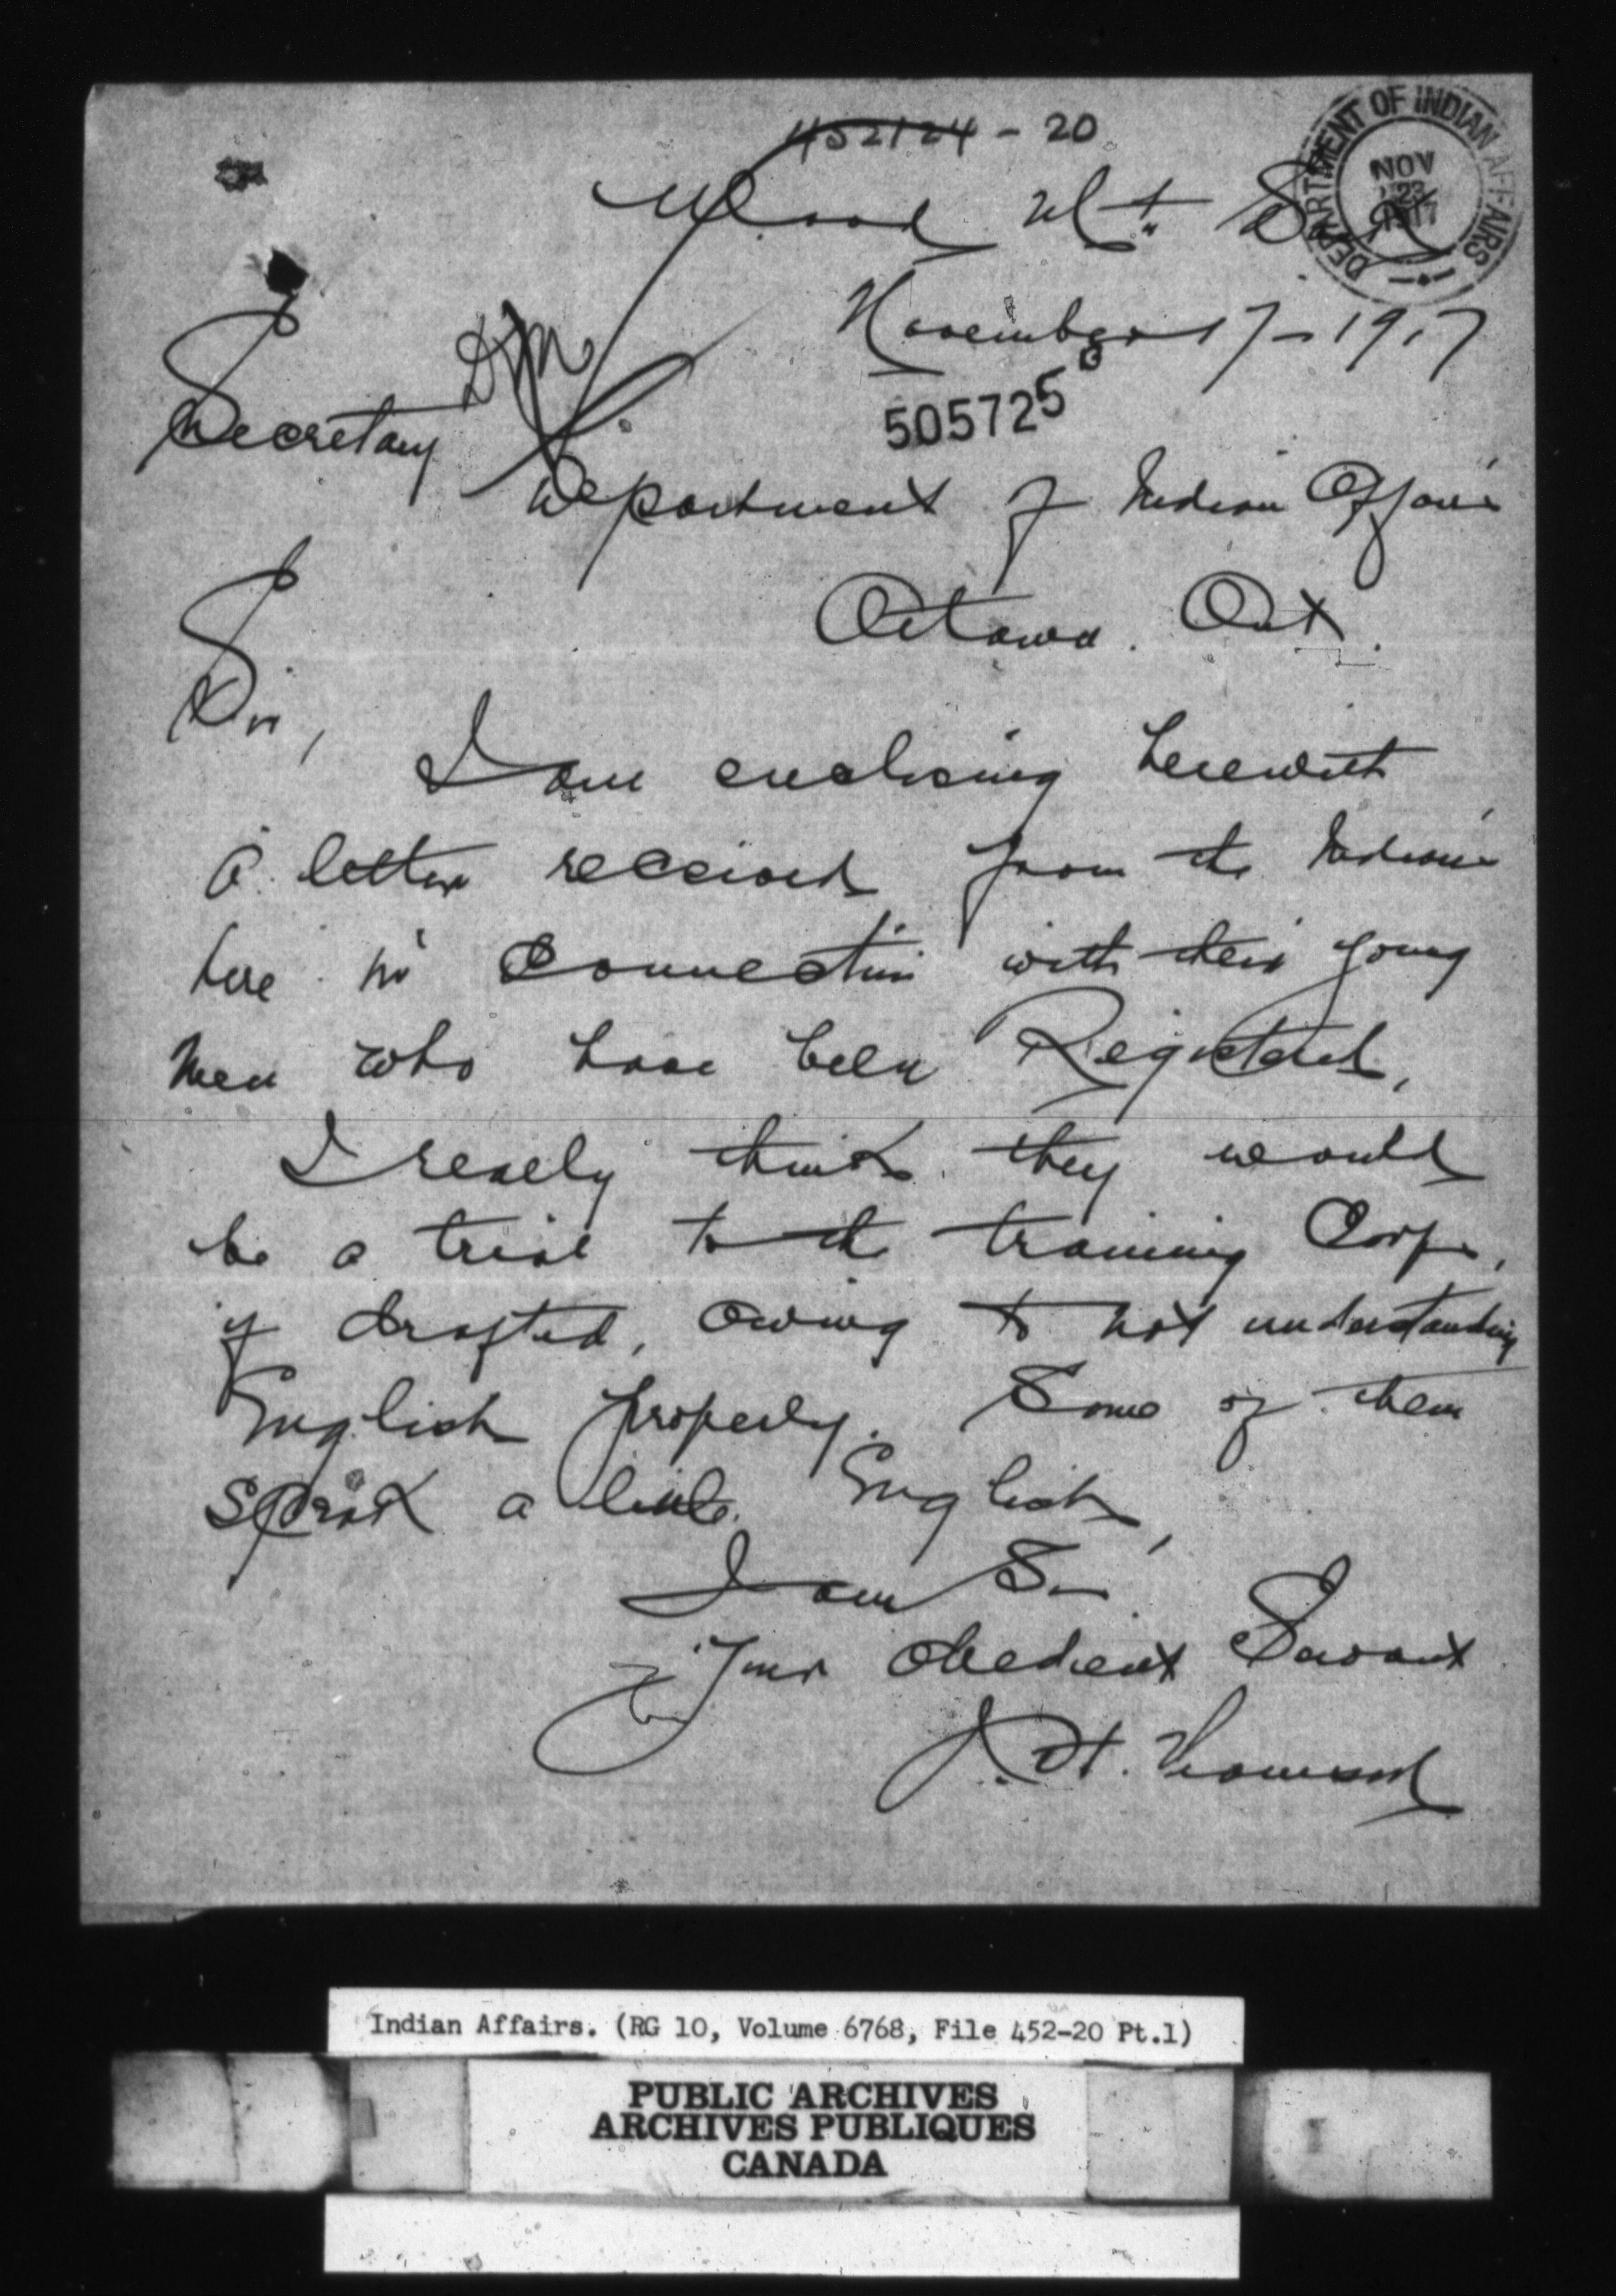 452124 - 20
DEPARTMENT OF INDIAN AFFAIRS
NOV
23
1917
Wood Mt.
November 17 - 1917
505725
Secretary
Department of Indian Affairs
Ottawa. Ont.
Sir,
I am enclosing herewith
a letter received from the Indians
here in connection with their young
men who have been Registered,
I really think they would
be a trial to the training Corps,
if drafted, owing to not understanding
English properly. Some of them
speak a little English,
I am Sir
Your Obedient Servant
J. H. Thomson
Indian Affairs. (RG 10, Volume 6768, File 452-20 Pt.1)
PUBLIC ARCHIVES
ARCHIVES PUBLIQUES
CANADA